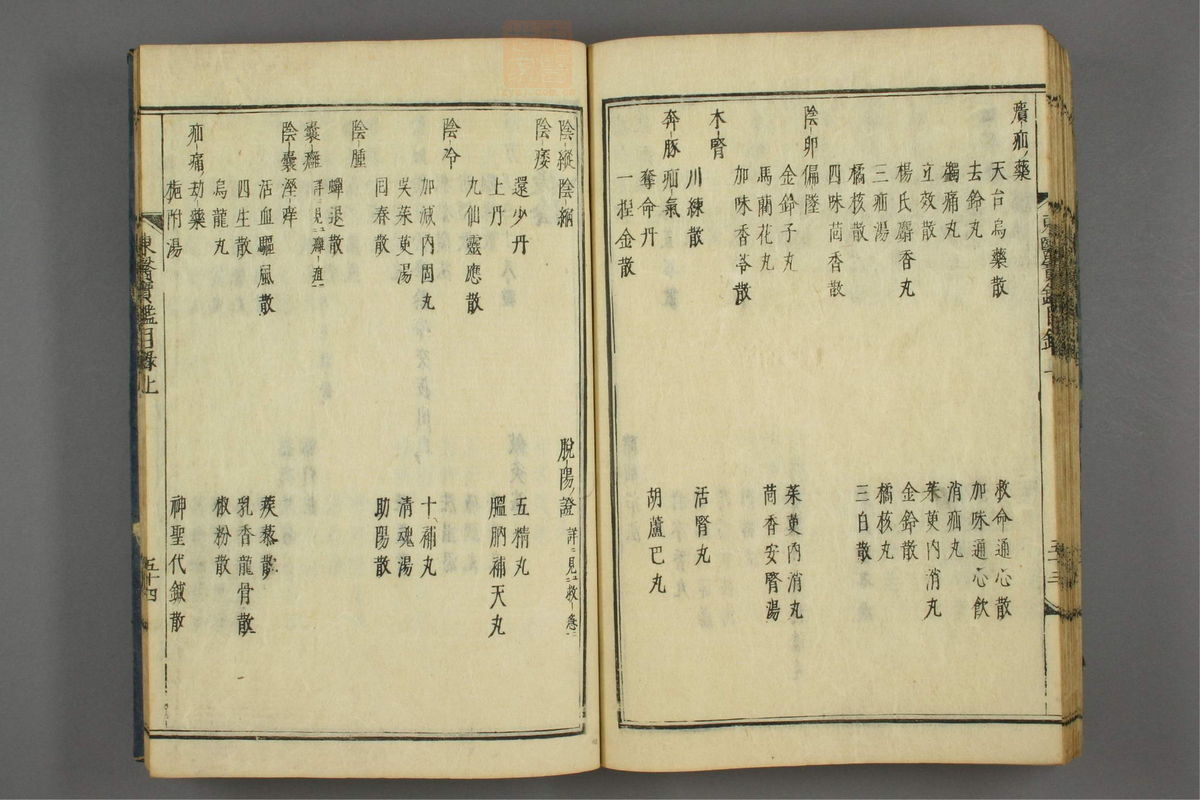 㿉疝藥
天台烏藥散
救命通心散
去鈴丸
加味通心飮
蠲痛丸
消疝丸
立效散
茱萸內消丸
楊氏麝香丸
金鈴散
三疝湯
橘核丸
橘核散
三白散
四味茴香散
陰卵偏墜
金鈴子丸
茱萸內消丸
馬藺花丸
茴香安腎湯
加味香苓散
木腎
川練散
活腎丸
奔豚疝氣
奪命丹
胡蘆巴丸
一捏金散
陰縱陰縮
脫陽證 詳見救卷
陰痿
還少丹
五精丸
上丹
膃肭補天丸
九仙靈應散
陰冷
加減內固丸
十補丸
吳茱萸湯
淸魂湯
回春散
助陽散
陰腫
蟬退散
囊癰 詳見癰疽
陰囊溼痒
活血驅風散
蒺莃散
四生散
乳香龍骨散
烏龍丸
椒粉散
疝痛劫藥
梔附湯
神聖代鍼散
東醫寶鑑目錄上
五十四